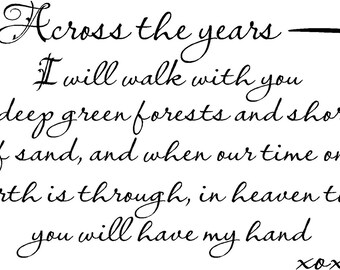 Across the years
I will walk with you
deep green forests and shor
f sand, and when our time on
rth is through, in heaven to
you will have my hand
xox